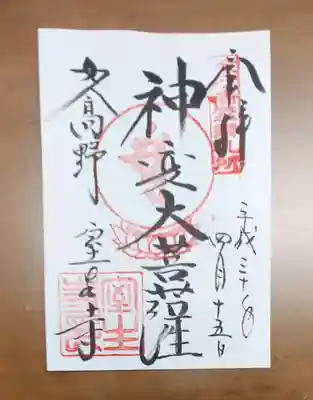 奉拝
平成三十年
四月十五日
神変大菩薩
女高野 室生寺